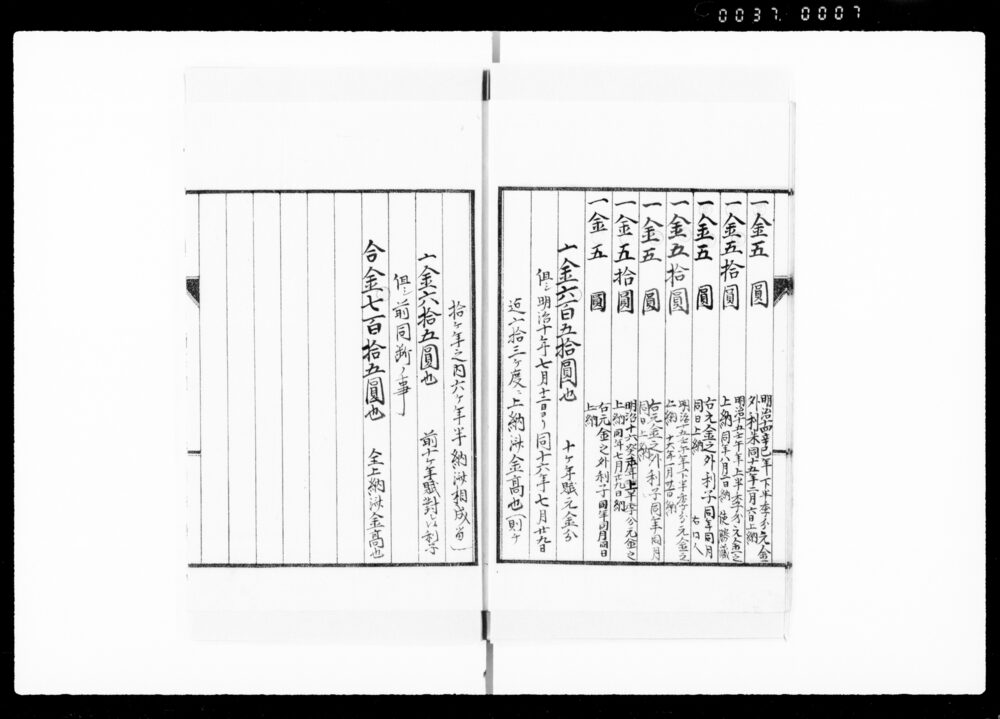 0037 0007
一金五圓
明治十四辛巳年下半季分元金
外利米同十五年二月六日上納
一金五拾圓
明治十五壬午年上半季分元金之
上納同年八月一日納 使勝蔵
一金五圓
右元金之外利子同年同月
同日上納 右同人
一金五拾圓
明治十五壬午年下半季分元金之
上納十六年一月廿五日納
一金五圓
右元金之外利子同年同月
同日上納
一金五拾圓
明治十六癸未年上半季分元金之
上納同年七月廿九日納
一金五圓
右元金之外利子同年同月同日
上納
一金六百五拾圓也 十ヶ年賦元金分
但シ明治十年七月十二日ゟ同十六年七月廿九日
迄六拾三ヶ度ニ上納済金高也則ヶ
拾ヶ年之内六ヶ年半納済相成ル
一金六拾五圓也 前十ヶ年賦對スル利子
但シ前同断ノ事
合金七百拾五圓也 全上納済金高也